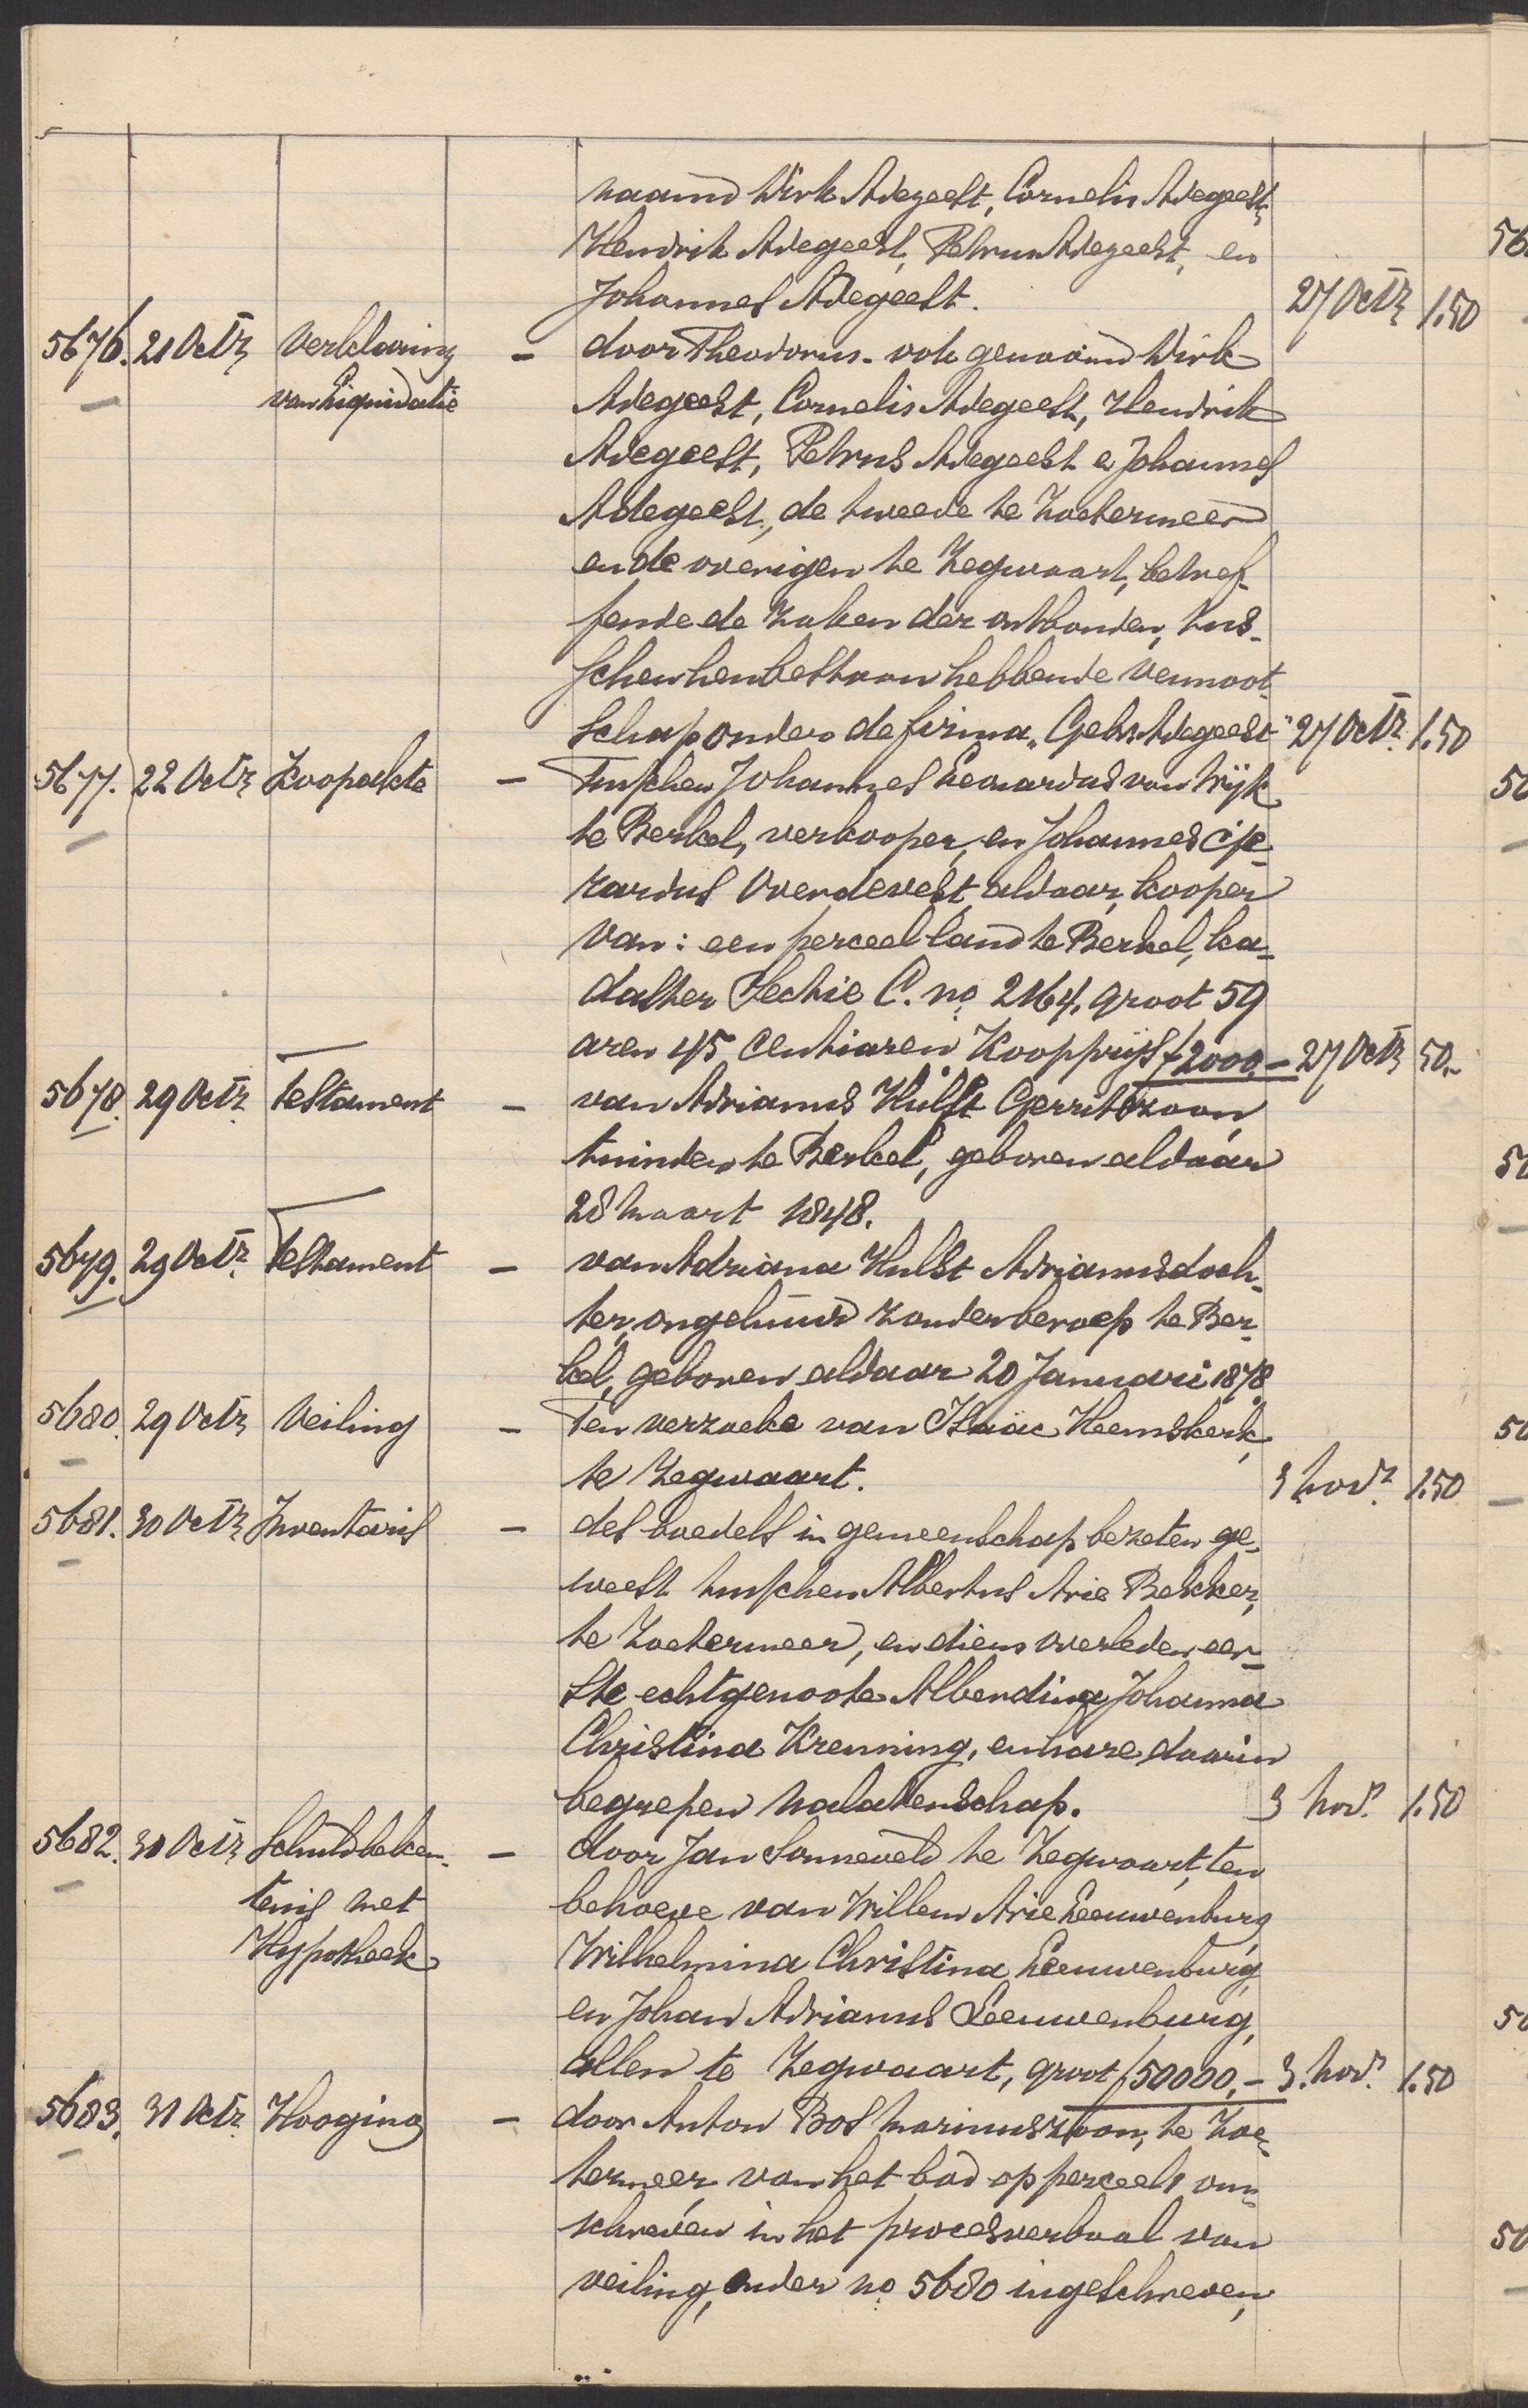 naamd Dirk Adegeest, Cornelis Adegeest,
Hendrik Adegeest, Petrus Adegeest, en
Johannes Adegeest. 27 Octr 1.50
5676. 21 Octr Verklaring — door Theodorus - ook genaamd Dirk
van Liquidatie Adegeest, Cornelis Adegeest, Hendrik
Adegeest, Petrus Adegeest en Johannes
Adegeest, de tweede te Zoetermeer
en de overigen te Zegwaart, betref-
fende de zaken der ontbonden, tus-
schen hen bestaan hebbende vennoot-
schap onder de firma „Gebrs Adegeest" 27 Octr. 1.50
5677. 22 Octr Koopakte — Tusschen Johannes Leonardus van Wijk
te Berkel, verkooper, en Johannes
Overdevest, aldaar, kooper
van: een perceel land te Berkel, ka-
daster Sectie C. no. 2164, groot 59
aren 45 centiaren Koopprijs f 2000,— 27 Octr 50.-
5678. 29 Octr. Testament — van Adrianus Hulst Gerritszoon,
tuinder te Berkel, geboren aldaar
28 Maart 1848.
5679. 29 Octr. Testament — van Adriana Hulst Adrianusdoch-
ter, ongehuwd zonder beroep te Ber-
kel, geboren aldaar 20 Januari 1878.
5680. 29 Octr Veiling — Ten verzoeke van Isaäc Heemskerk,
te Zegwaart. 3 Novr. 1.50
5681. 30 Octr Inventaris — des boedels in gemeenschap bezeten ge-
weest tusschen Albertus Arie Bekker,
te Zoetermeer, en diens overleden eer-
ste echtgenoote Alberdina Johanna
Christina Krenning, en hare daarin
begrepen nalatenschap. 3 Nov. 1.50
5682. 30 Octr Schuldbeken- — door Jan Sonneveld te Zegwaart, ten
tenis met behoeve van Willem Arie Leeuwenburg
Hypotheek Wilhelmina Christina Leeuwenburg,
en Johan Adrianus Leeuwenburg,
allen te Zegwaart, groot f 50000,— 3. Nov. 1.50
5683. 31 Octr. Hooging — door Anton Bos Marinuszoon, te Zoe-
termeer, van het bod op perceel 1 om-
schreven in het procesverbaal van
veiling, onder no. 5680 ingeschreven,